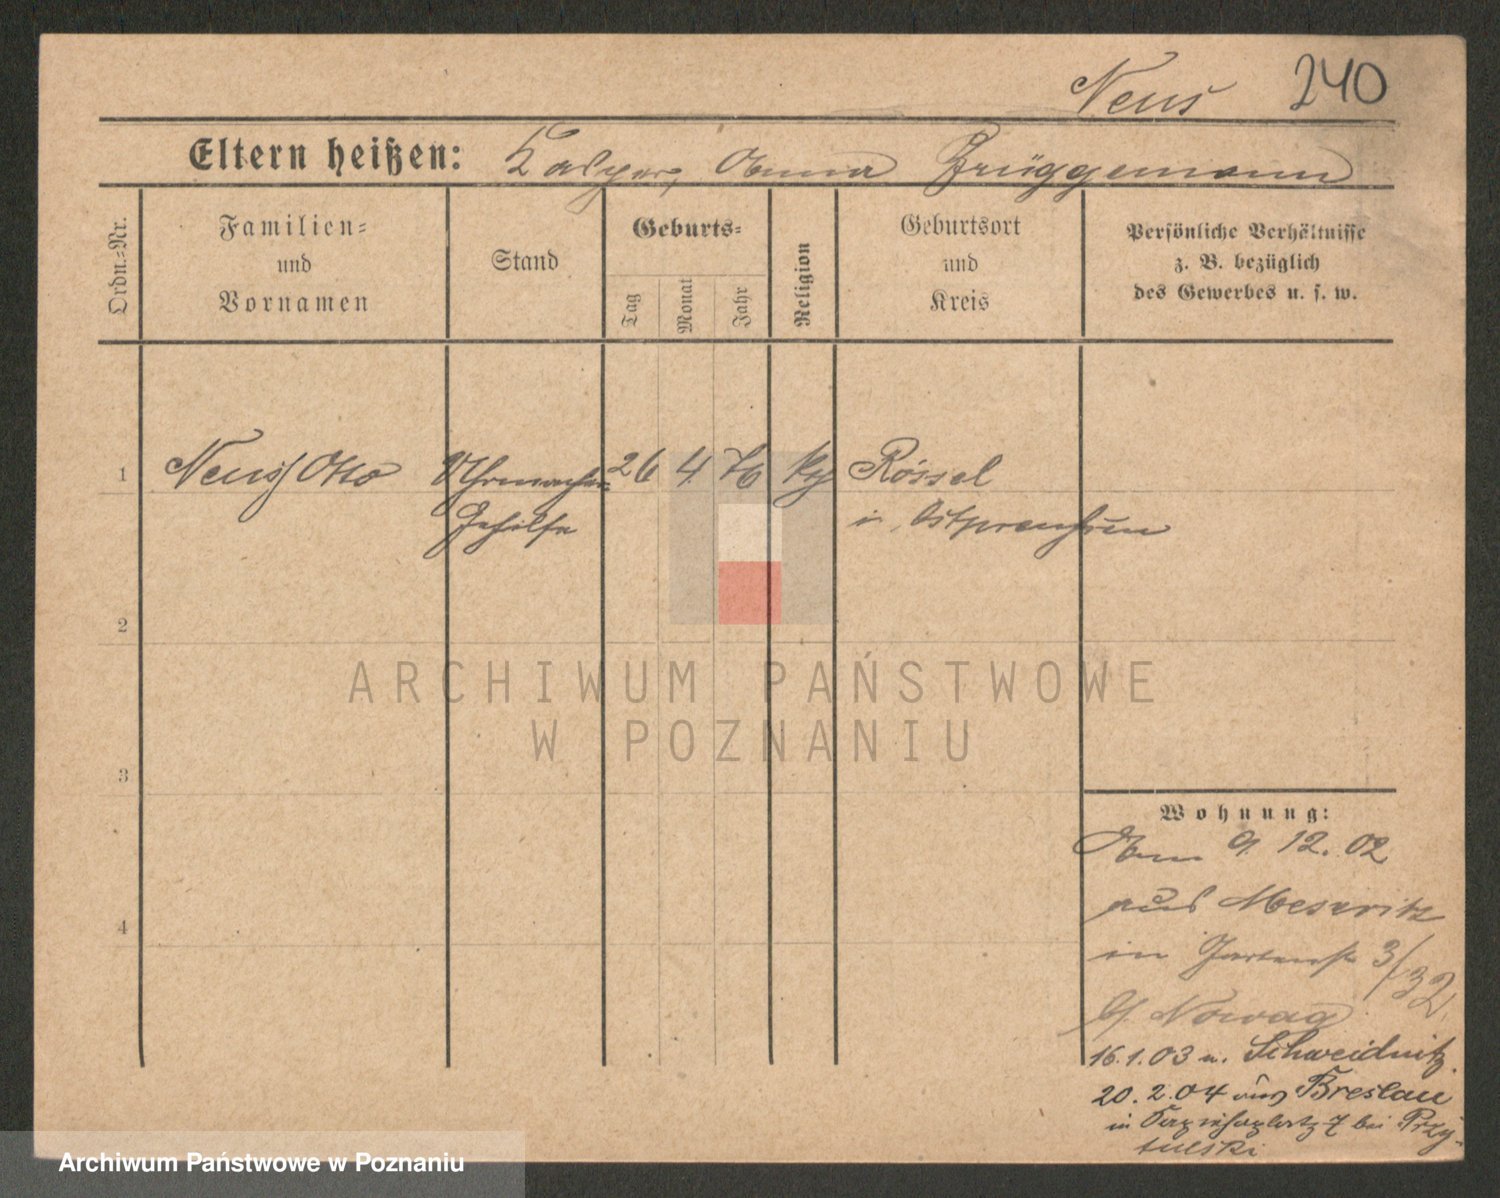 Neus 240
Eltern heißen: Kasper, Anna Brüggemann
Ordn.-Nr.
Familien-
und
Vornamen
Stand
Geburts-
Tag
Monat
Jahr
Religion
Geburtsort
und
Kreis
Persönliche Verhältnisse
z. B. bezüglich
des Gewerbes u. s. w.
1 Neus Otto Uhrmacher- 26 4. 76 Rössel
Gehilfe i. Ostpreußen
2
3
4
Wohnung:
9. 12. 02
aus Meseritz
in Gartenstr 3/32
b/. Nowag
16.1.03 n. Schweidnitz.
20. 2. 04 aus Breslau
in Kapiehaplatz 7 bei Przy-
tulski
ARCHIWUM PAŃSTWOWE
W POZNANIU
Archiwum Państwowe w Poznaniu